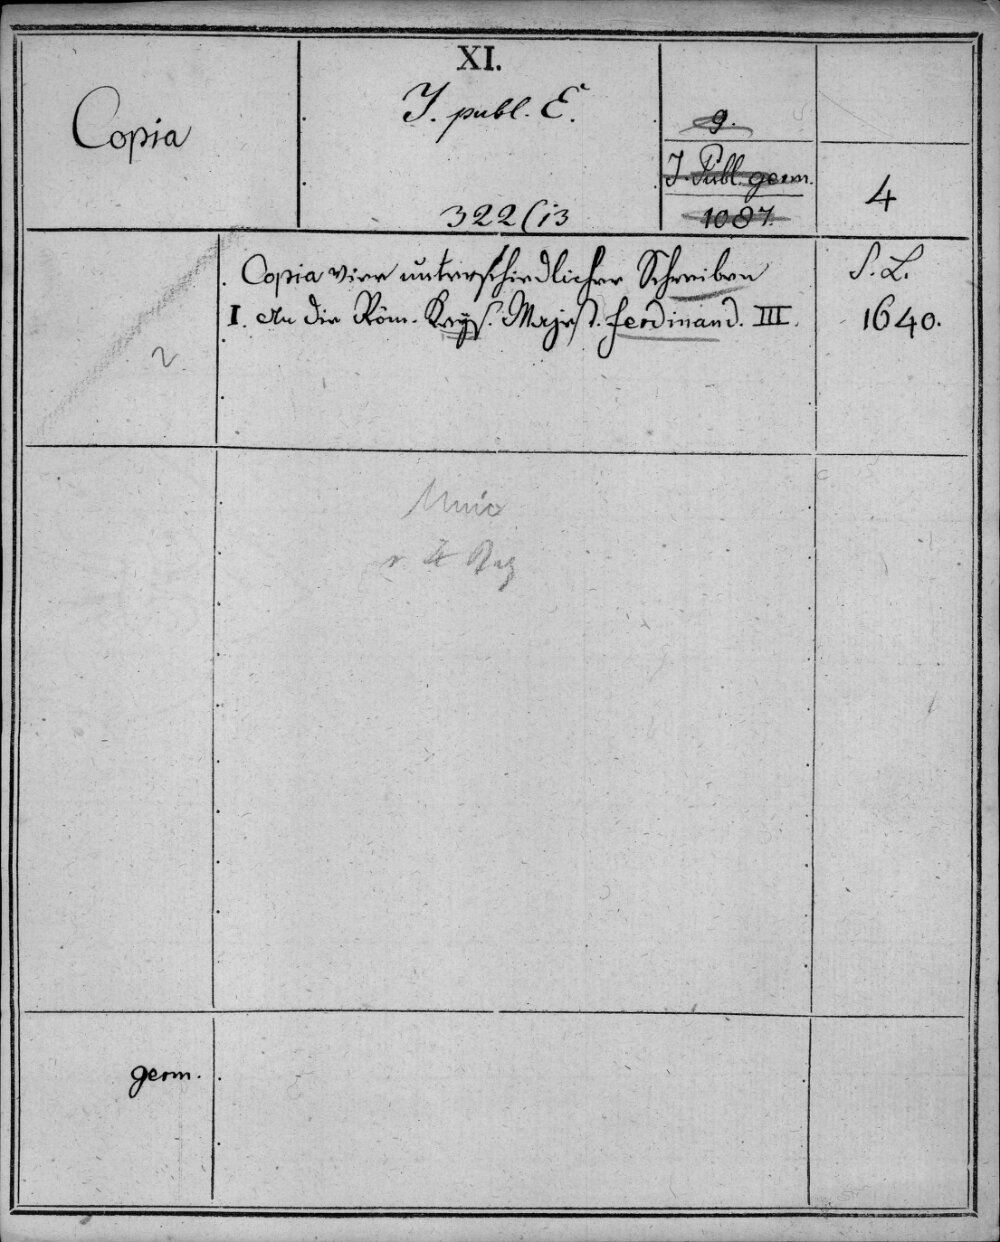 XI.
Copia
J. publ. E.
9.
J. Publ. germ.
1087.
4
322(13
Copia vier unterschiedlicher Schreiben
S. L.
I. An die Röm. Keys. Majest. Ferdinand. III.
1640.
2
germ.